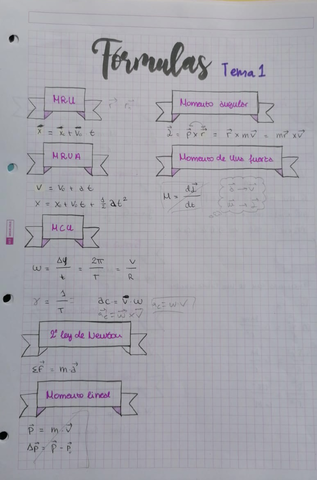 Fórmulas Tema 1
MRU
x⃗ = x⃗₀ + v⃗₀ t
MRUA
v = v₀ + a t
x = x₀ + v₀ t + 1/2 a t²
MCU
ω = Δφ/t = 2π/T = V/R
γ = 1/T
ac = v⃗ · ω
a⃗c = ω⃗ × v⃗
2ª ley de Newton
Σf⃗ = m · a⃗
Momento lineal
p⃗ = m · v⃗
Δp⃗ = p⃗ - p⃗₀
Momento angular
L⃗ = p⃗ × r⃗ = r⃗ × m v⃗ = m r⃗ × v⃗
Momento de una fuerza
M = dL⃗/dt